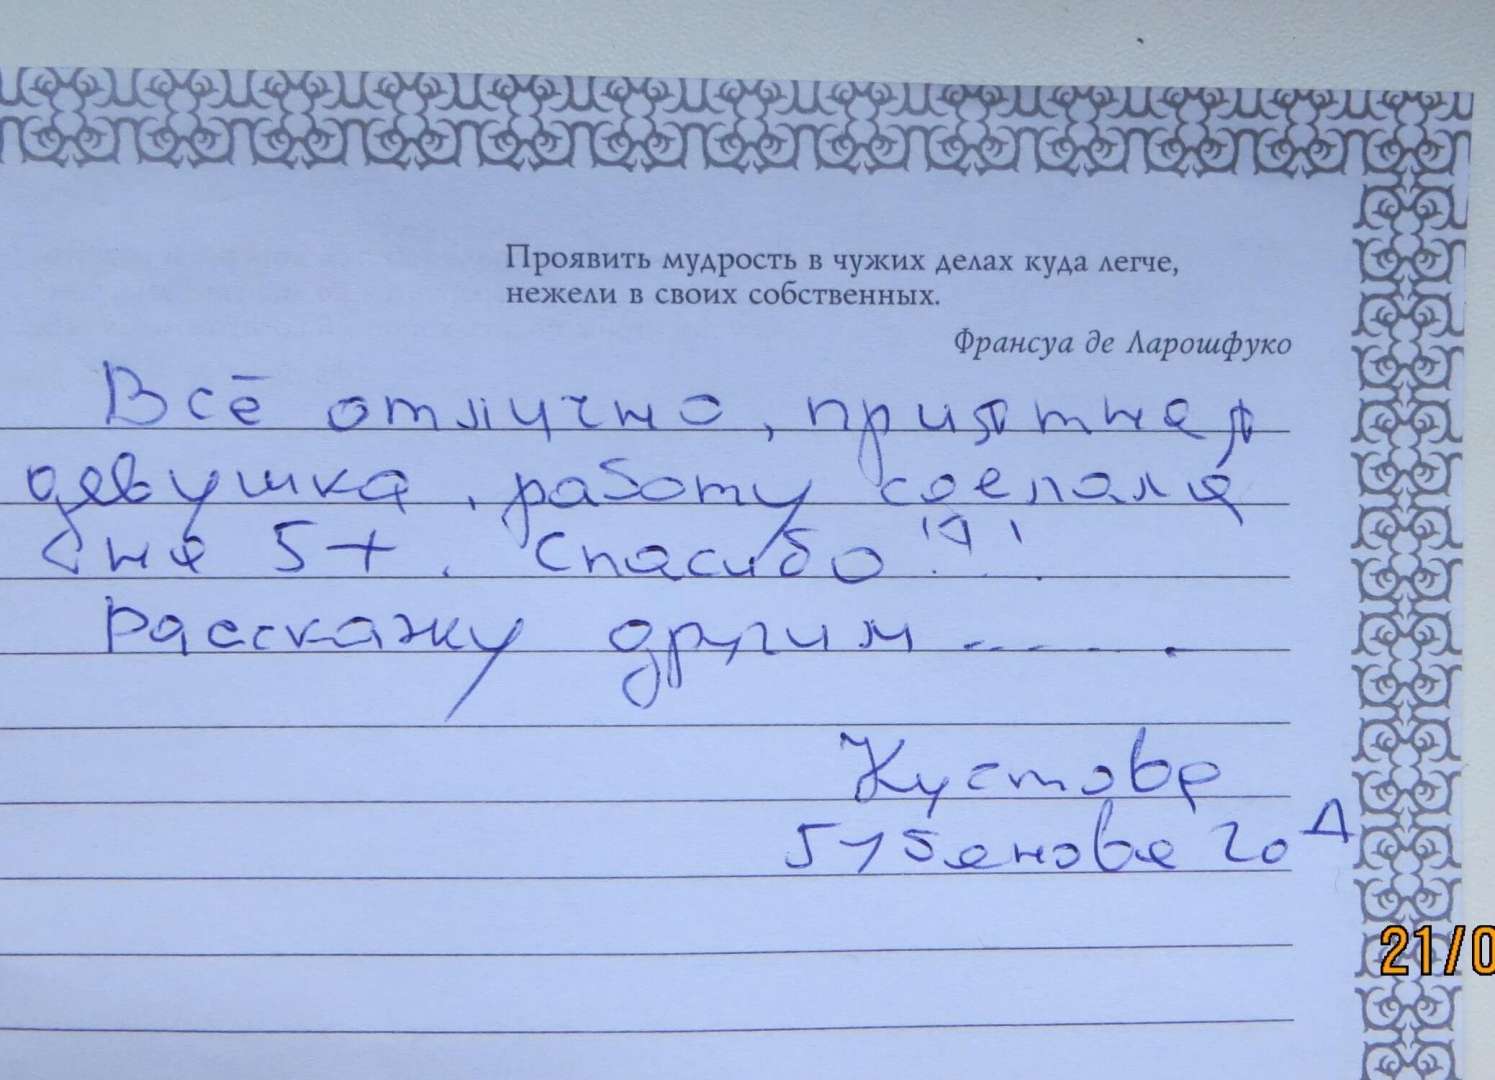 Проявить мудрость в чужих делах куда легче,
нежели в своих собственных.
Франсуа де Ларошфуко
Всё отлично, приятная
девушка, работу сделала
на 5+. Спасибо!!!
Расскажу другим ......
Кустова
21/0